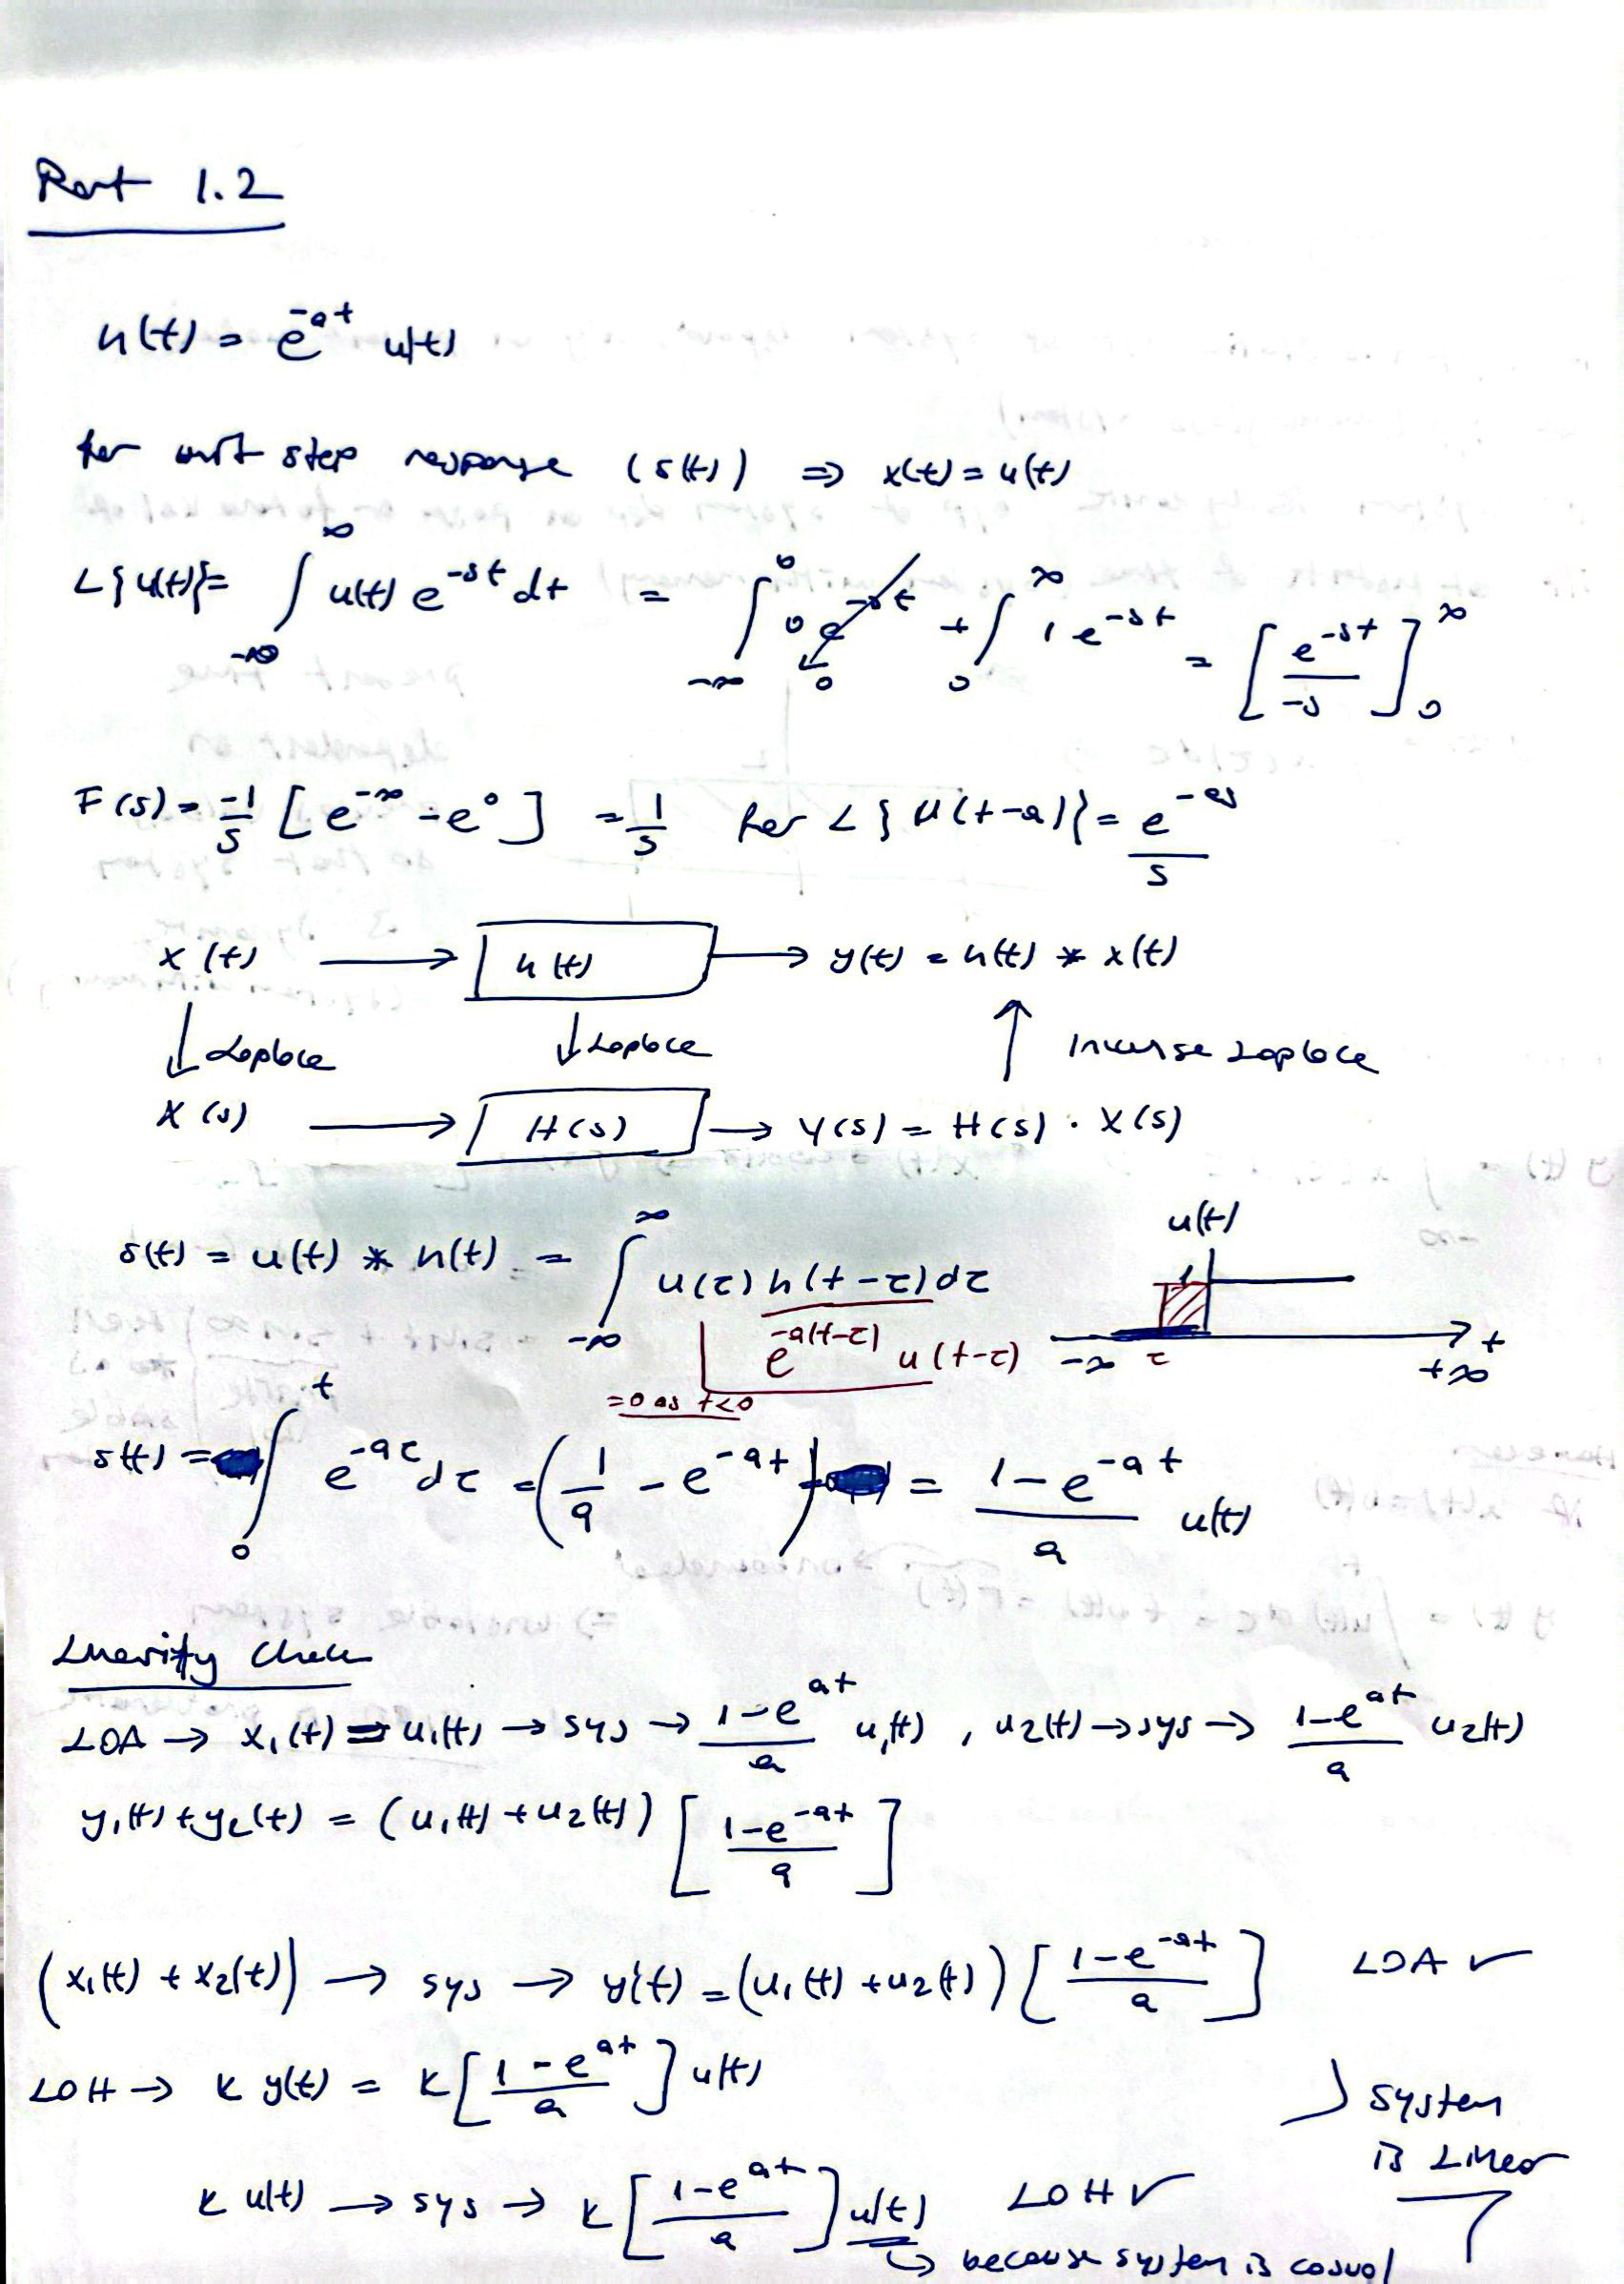 Part 1.2
h(t) = e^{-at} u(t)
for unit step response (s(t)) ⇒ x(t) = u(t)
L{u(t)} = ∫_{-∞}^{∞} u(t) e^{-st} dt = ∫_{-∞}^{0} 0 e^{-st} → 0 + ∫_{0}^{∞} 1 e^{-st} = [e^{-st} / -s]_{0}^{∞}
F(s) = -1/s [e^{-∞} - e^{0}] = 1/s for L{u(t-a)} = e^{-as} / s
x(t) → h(t) → y(t) = h(t) * x(t)
↓ Laplace ↓ Laplace ↑ Inverse Laplace
X(s) → H(s) → Y(s) = H(s) · X(s)
u(t)
s(t) = u(t) * h(t) = ∫_{-∞}^{∞} u(τ) h(t-τ) dτ
1
e^{-a(t-τ)} u(t-τ)
-∞ τ +∞ t
=0 as t<0
s(t) = ∫_{0}^{t} e^{-aτ} dτ = (1/a - e^{-at}) = (1-e^{-at})/a u(t)
Linearity Check
LOA → x₁(t) = u₁(t) → sys → (1-e^{at})/a u₁(t) , u₂(t) → sys → (1-e^{at})/a u₂(t)
y₁(t) + y₂(t) = (u₁(t) + u₂(t)) [(1-e^{-at})/a]
(x₁(t) + x₂(t)) → sys → y'(t) = (u₁(t) + u₂(t)) [(1-e^{-at})/a] LOA ✓
LOH → K y(t) = K [(1-e^{at})/a] u(t)
System
is Linear
K u(t) → sys → K [(1-e^{at})/a] u(t) LOH ✓
↳ because system is casual